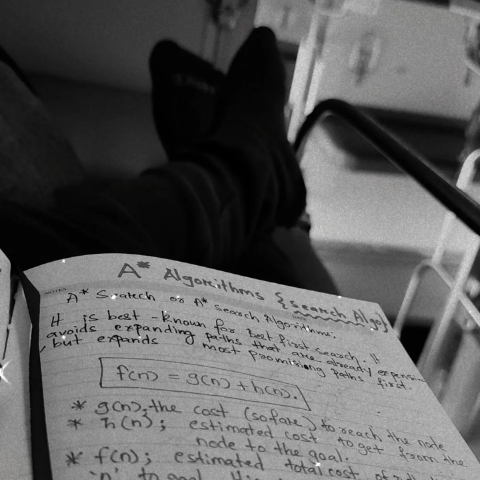 NOTES
A* Algorithms {search Algo}
A* Sratech or A* search Algorithms:
It is best-known for best first search. It
avoids expanding paths that are already expensi
but expands most promising paths first.
f(n) = g(n) + h(n).
* g(n); the cost (sofare) to reach the node
* h(n); estimated cost to get from the
node to the goal.
* f(n); estimated total cost of
'n' to goal.